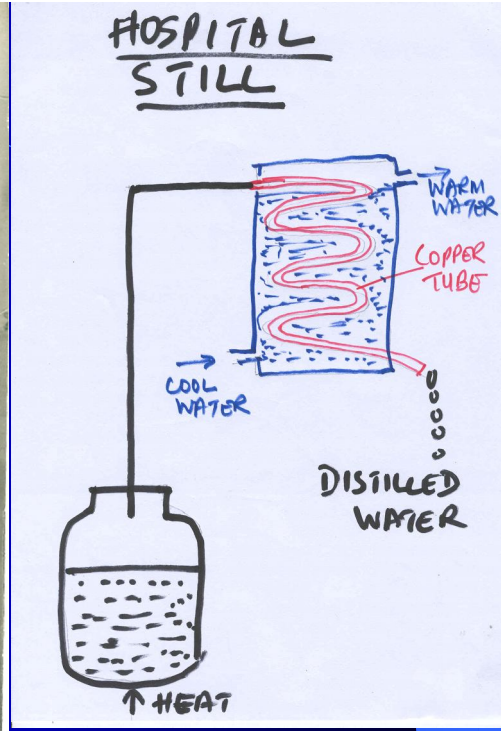 HOSPITAL
STILL
WARM
WATER
COPPER
TUBE
COOL
WATER
DISTILLED
WATER
HEAT